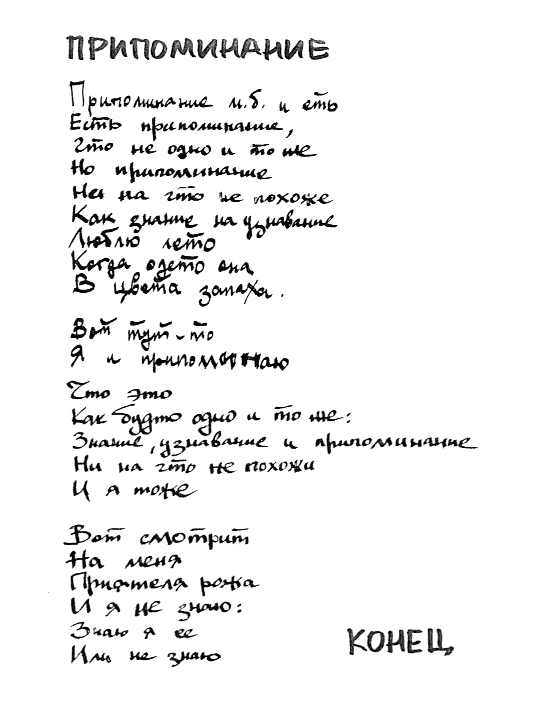 ПРИПОМИНАНИЕ
Припоминание м.б. и еть
Есть припоминание,
Что не одно и то же
Но припоминание
Ни на что не похоже
Как знание на узнавание
Люблю лето
Когда одето она
В цвета запаха.
Вот тут-то
Я и припоминаю
Что это
Как будто одно и то же:
Знание, узнавание и припоминание
Ни на что не похожи
И я тоже
Вот смотрит
На меня
Приятеля рожа
И я не знаю:
Знаю я ее
Или не знаю
КОНЕЦ